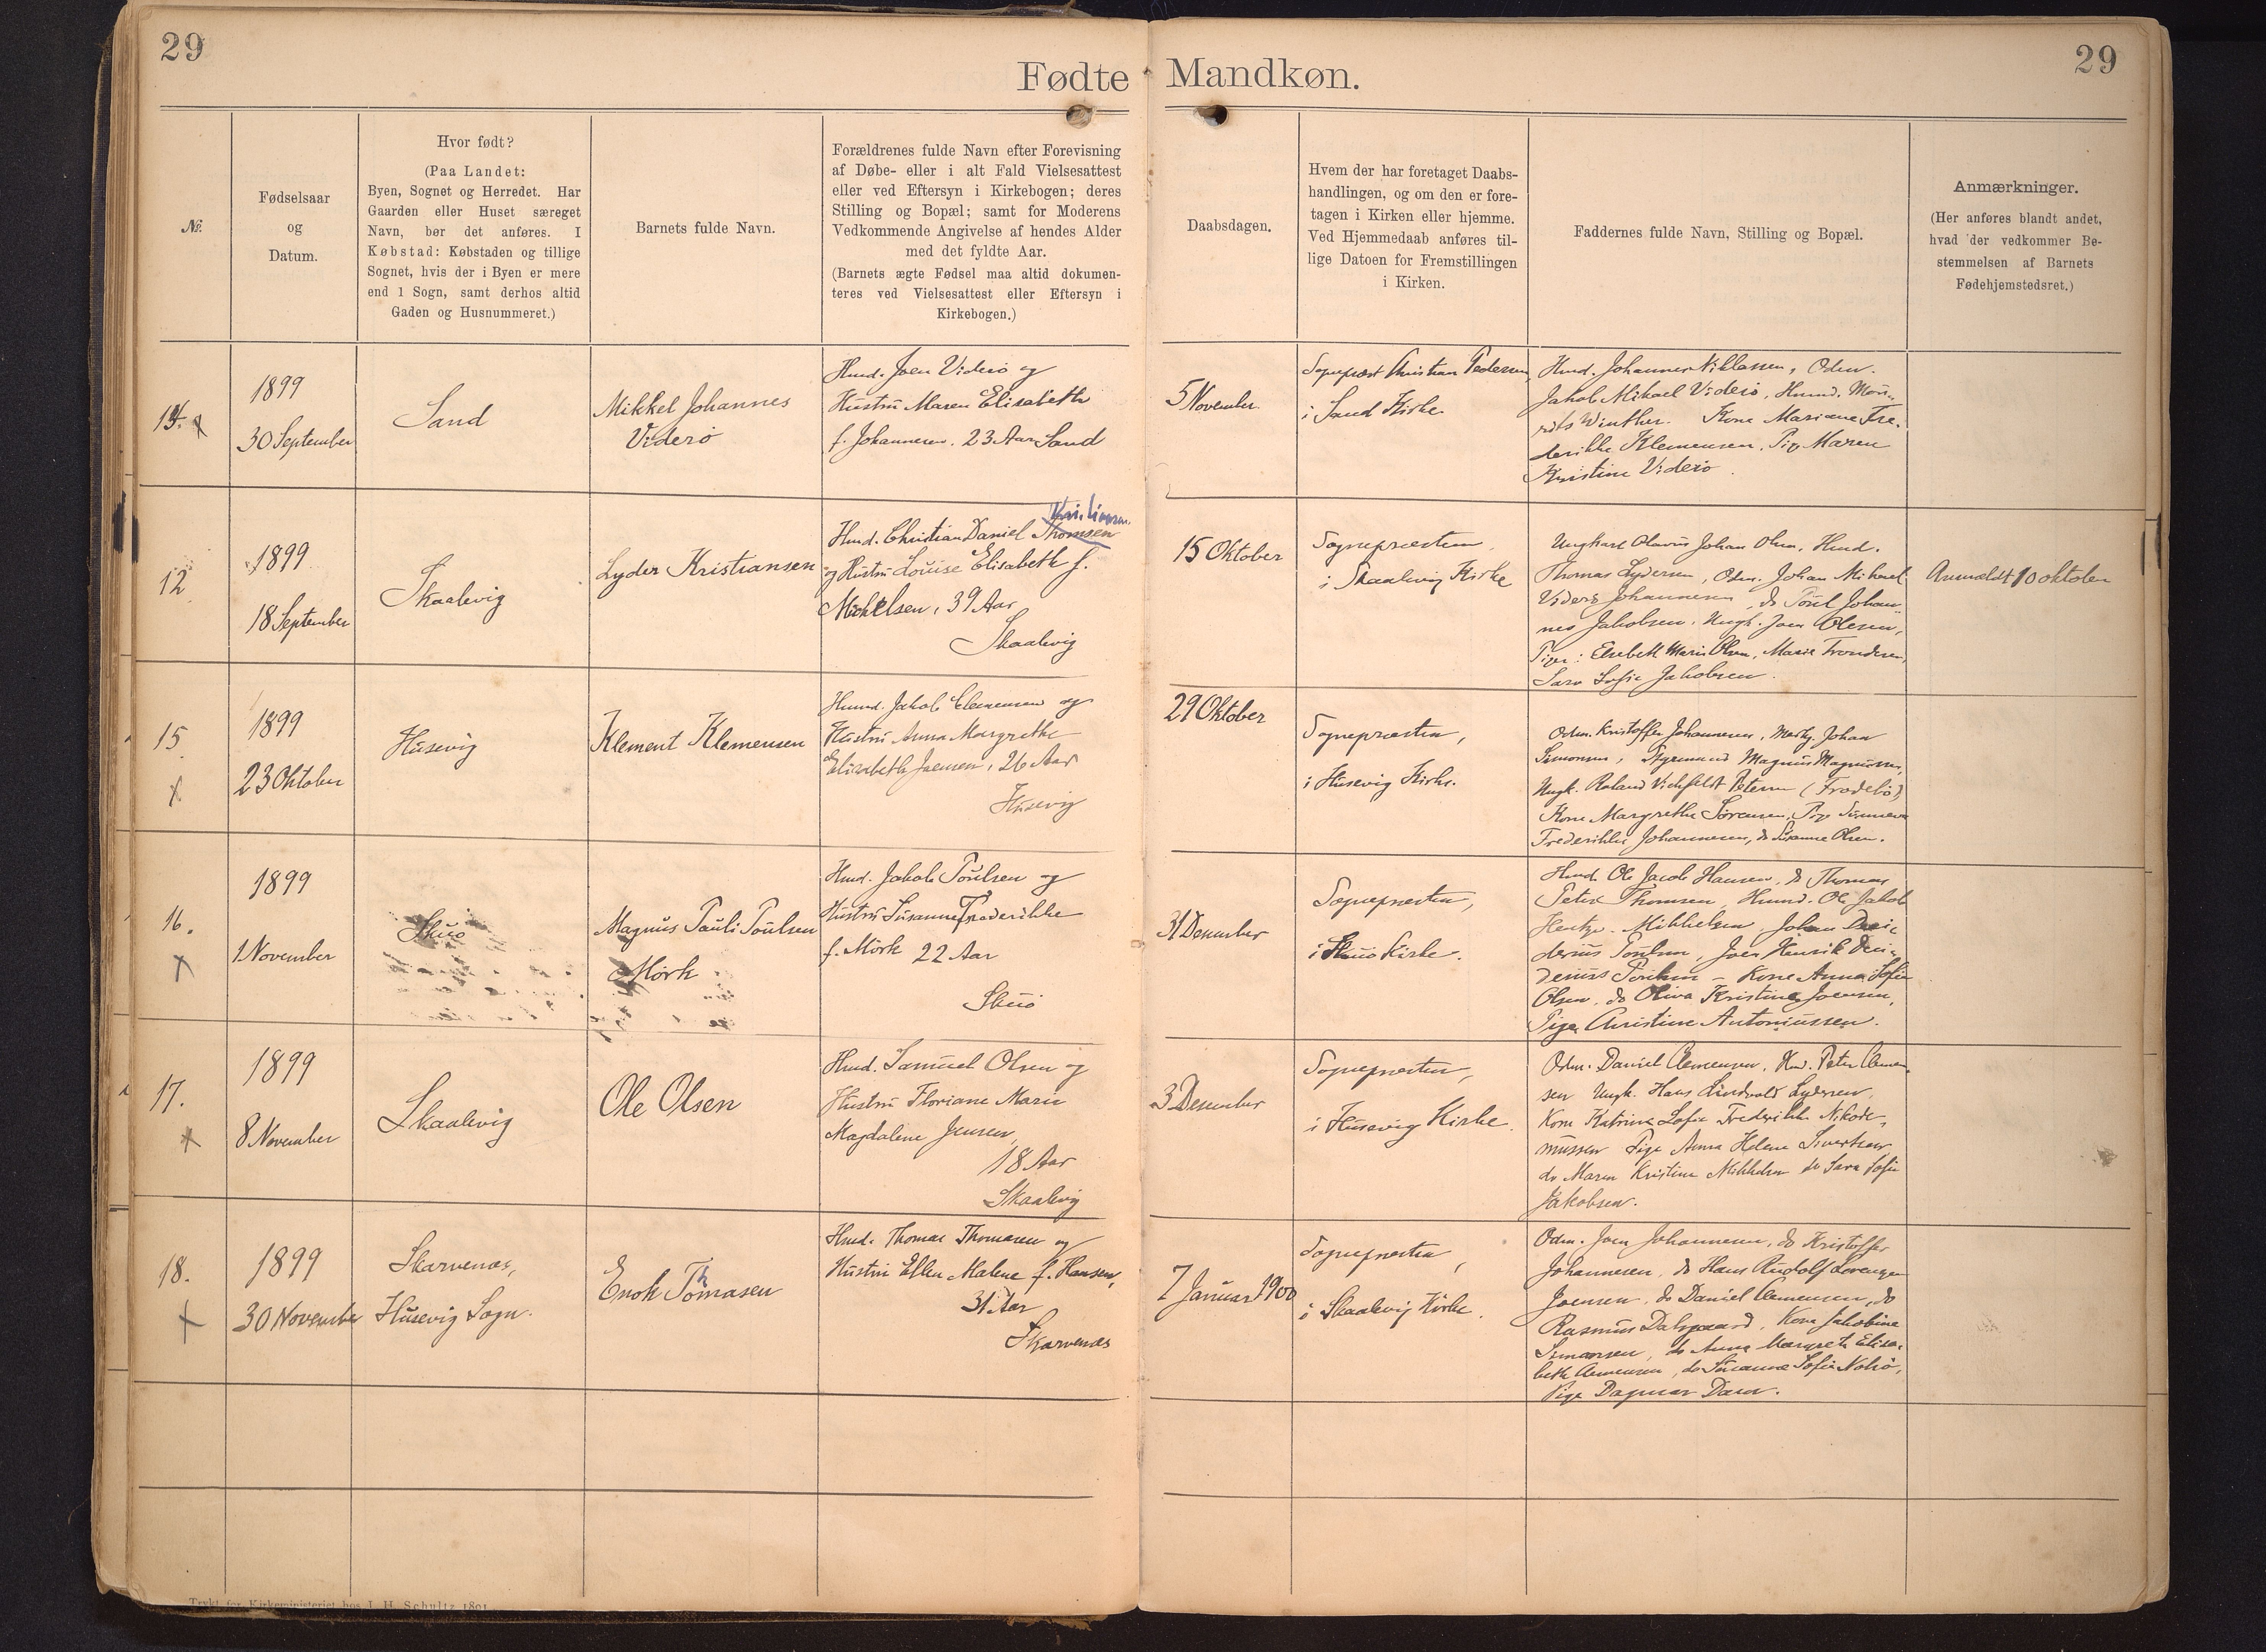 29
29
Fødte Mandkøn.
№.
Fødselsaar
og
Datum.
Hvor født?
(Paa Landet:
Byen, Sognet og Herredet. Har
Gaarden eller Huset særeget
Navn, bør det anføres. I
Købstad: Købstaden og tillige
Sognet, hvis der i Byen er mere
end 1 Sogn, samt derhos altid
Gaden og Husnummeret.)
Barnets fulde Navn.
Forældrenes fulde Navn efter Forevisning
af Døbe- eller i alt Fald Vielsesattest
eller ved Eftersyn i Kirkebogen; deres
Stilling og Bopæl; samt for Moderens
Vedkommende Angivelse af hendes Alder
med det fyldte Aar.
(Barnets ægte Fødsel maa altid dokumen-
teres ved Vielsesattest eller Eftersyn i
Kirkebogen.)
Daabsdagen.
Hvem der har foretaget Daabs-
handlingen, og om den er fore-
tagen i Kirken eller hjemme.
Ved Hjemmedaab anføres til-
lige Datoen for Fremstillingen
i Kirken.
Faddernes fulde Navn, Stilling og Bopæl.
Anmærkninger.
(Her anføres blandt andet,
hvad der vedkommer Be-
stemmelsen af Barnets
Fødehjemstedsret.)
14. x
1899
30 September
Sand
Mikkel Johannes
Viderö
Hmd. Joen Viderö og
Hustru Maren Elisabeth
f. Johannesen. 23 Aar Sand
5 November
Sognepræst Christian Pedersen,
i Sand Kirke
Hmd. Johannes Niklassen, Odm.
Jakob Mikael Viderö, Hmmd. Mou-
rits Winther. Kone Mariane Fre-
derikke Klemensen, Pige Maren
Kristine Viderö.
12
1899
18 September
Skaalevig
Lyder Kristiansen
Hmd. Christian Daniel Thomsen
og Hustru Louise Elisabeth f.
Michelsen, 39 Aar
Skaalevig
15 Oktober
Sognepræsten
i Skaalevig Kirke
Ungkarl Olavus Johan Olsen, Hmd.
Thomas Lydersen, Odm. Johan Mikael
Viderö Johannesen, do Poul Johan-
nes Jakobsen, Ungk. Joen Olesen,
Piger: Elsebeth Marie Olsen, Marie Trondesen,
Sara Sofie Jakobsen.
Anmeldt 10 oktober
15
x
1899
23 Oktober
Husevig
Klement Klemensen
Hmmd. Jakob Clemensen og
Hustru Anna Margrethe
Elisabeth Joensen, 26 Aar
Husevig
29 Oktober
Sognepræsten,
i Husevig Kirke.
Odm. Kristoffer Johannesen, Johan
Simonsen, Magnus Magnussen,
Ungk. Roland Petersen (Frodebö),
Kone Margrethe Sörensen, Pige Sunneva
Frederikke Johannesen, do Susanne Olsen.
16.
x
1899
1 November
Skuö
Magnus Pauli Poulsen
Mörk
Hmd. Jakob Poulsen og
Hustru Susanne Frederikke
f. Mörk 22 Aar
Skuö
31 Desember
Sognepræsten,
i Skuö Kirke.
Hmd. Ole Jacob Hansen, do Thomas
Peter Thomsen, Hmmd. Ole Jakob
Hentze Mikkelsen, Johan Desi-
derius Poulsen, Joen Henrik Desi-
derius Poulsen – Kone Anna Sofie
Olsen, do Oliva Kristine Joensen,
Pige Christine Antoniussen.
17.
x
1899
8 November
Skaalevig
Ole Olsen
Hmd. Samuel Olsen og
Hustru Floriane Marie
Magdalene Jensen,
18 Aar
Skaalevig
3 Desember
Sognepræsten,
i Husevig Kirke.
Odm. Daniel Clemensen, Hmd. Peter Clemen-
sen Ungk. Hans Lindvald Lydersen,
Kone Katrine Sofie Frederikke Nikode-
mussen Pige Anna Helene Sivertsen
do Maren Kristine Mikkelsen do Sara Sofie
Jakobsen.
18.
x
1899
30 November
Skarvenæs,
Husevig Sogn.
Enok Thomasen
Hmd. Thomas Thomasen og
Hustru Ellen Malene f. Hansen,
31 Aar
Skarvenæs
7 Januar 1900
Sognepræsten,
i Skaalevig Kirke.
Odm. Joen Johannesen, do Kristoffer
Johannesen, do Hans Rudolf Lorenzen
Joensen, do Daniel Clemensen, do
Rasmus Dalsgaard, Kone Jakobine
Simonsen, do Anna Margrete Elisa-
beth Clemensen, do Susanne Sofie Nolsö,
Pige Dagmar Dam.
Trykt for Kirkeministeriet hos J. H. Schultz 1891